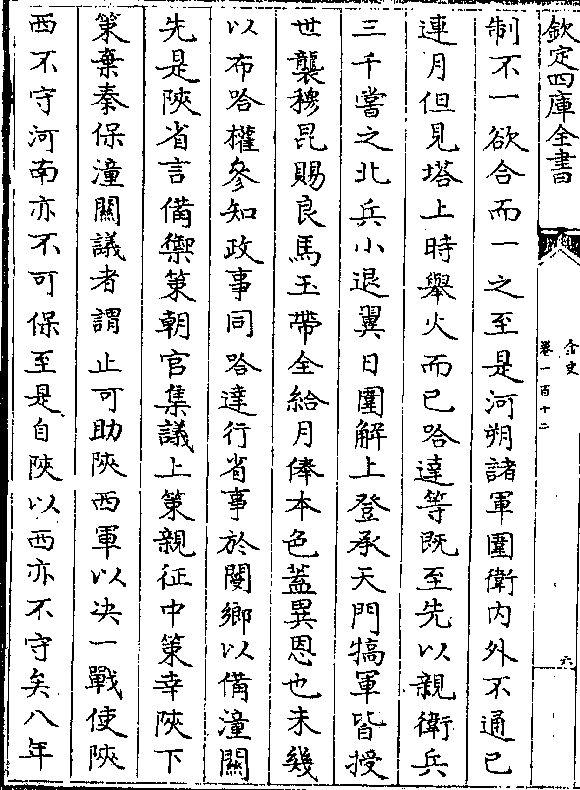 欽定四庫全書
金史
卷一百十二
六
制不一欲合而一之至是河朔諸軍圍衛内外不通已
連月但見塔上時舉火而已哈達等既至先以親衛兵
三千嘗之北兵小退翼日圍解上登承天門犒軍皆授
世襲穆昆賜良馬玉帶全給月俸本色蓋異恩也未幾
以布哈權參知政事同哈達行省事於閿鄉以備潼關
先是陜省言備禦策朝官集議上策親征中策幸陜下
策棄秦保潼關議者謂止可助陜西軍以決一戰使陜
西不守河南亦不可保至是自陜以西亦不守矣八年